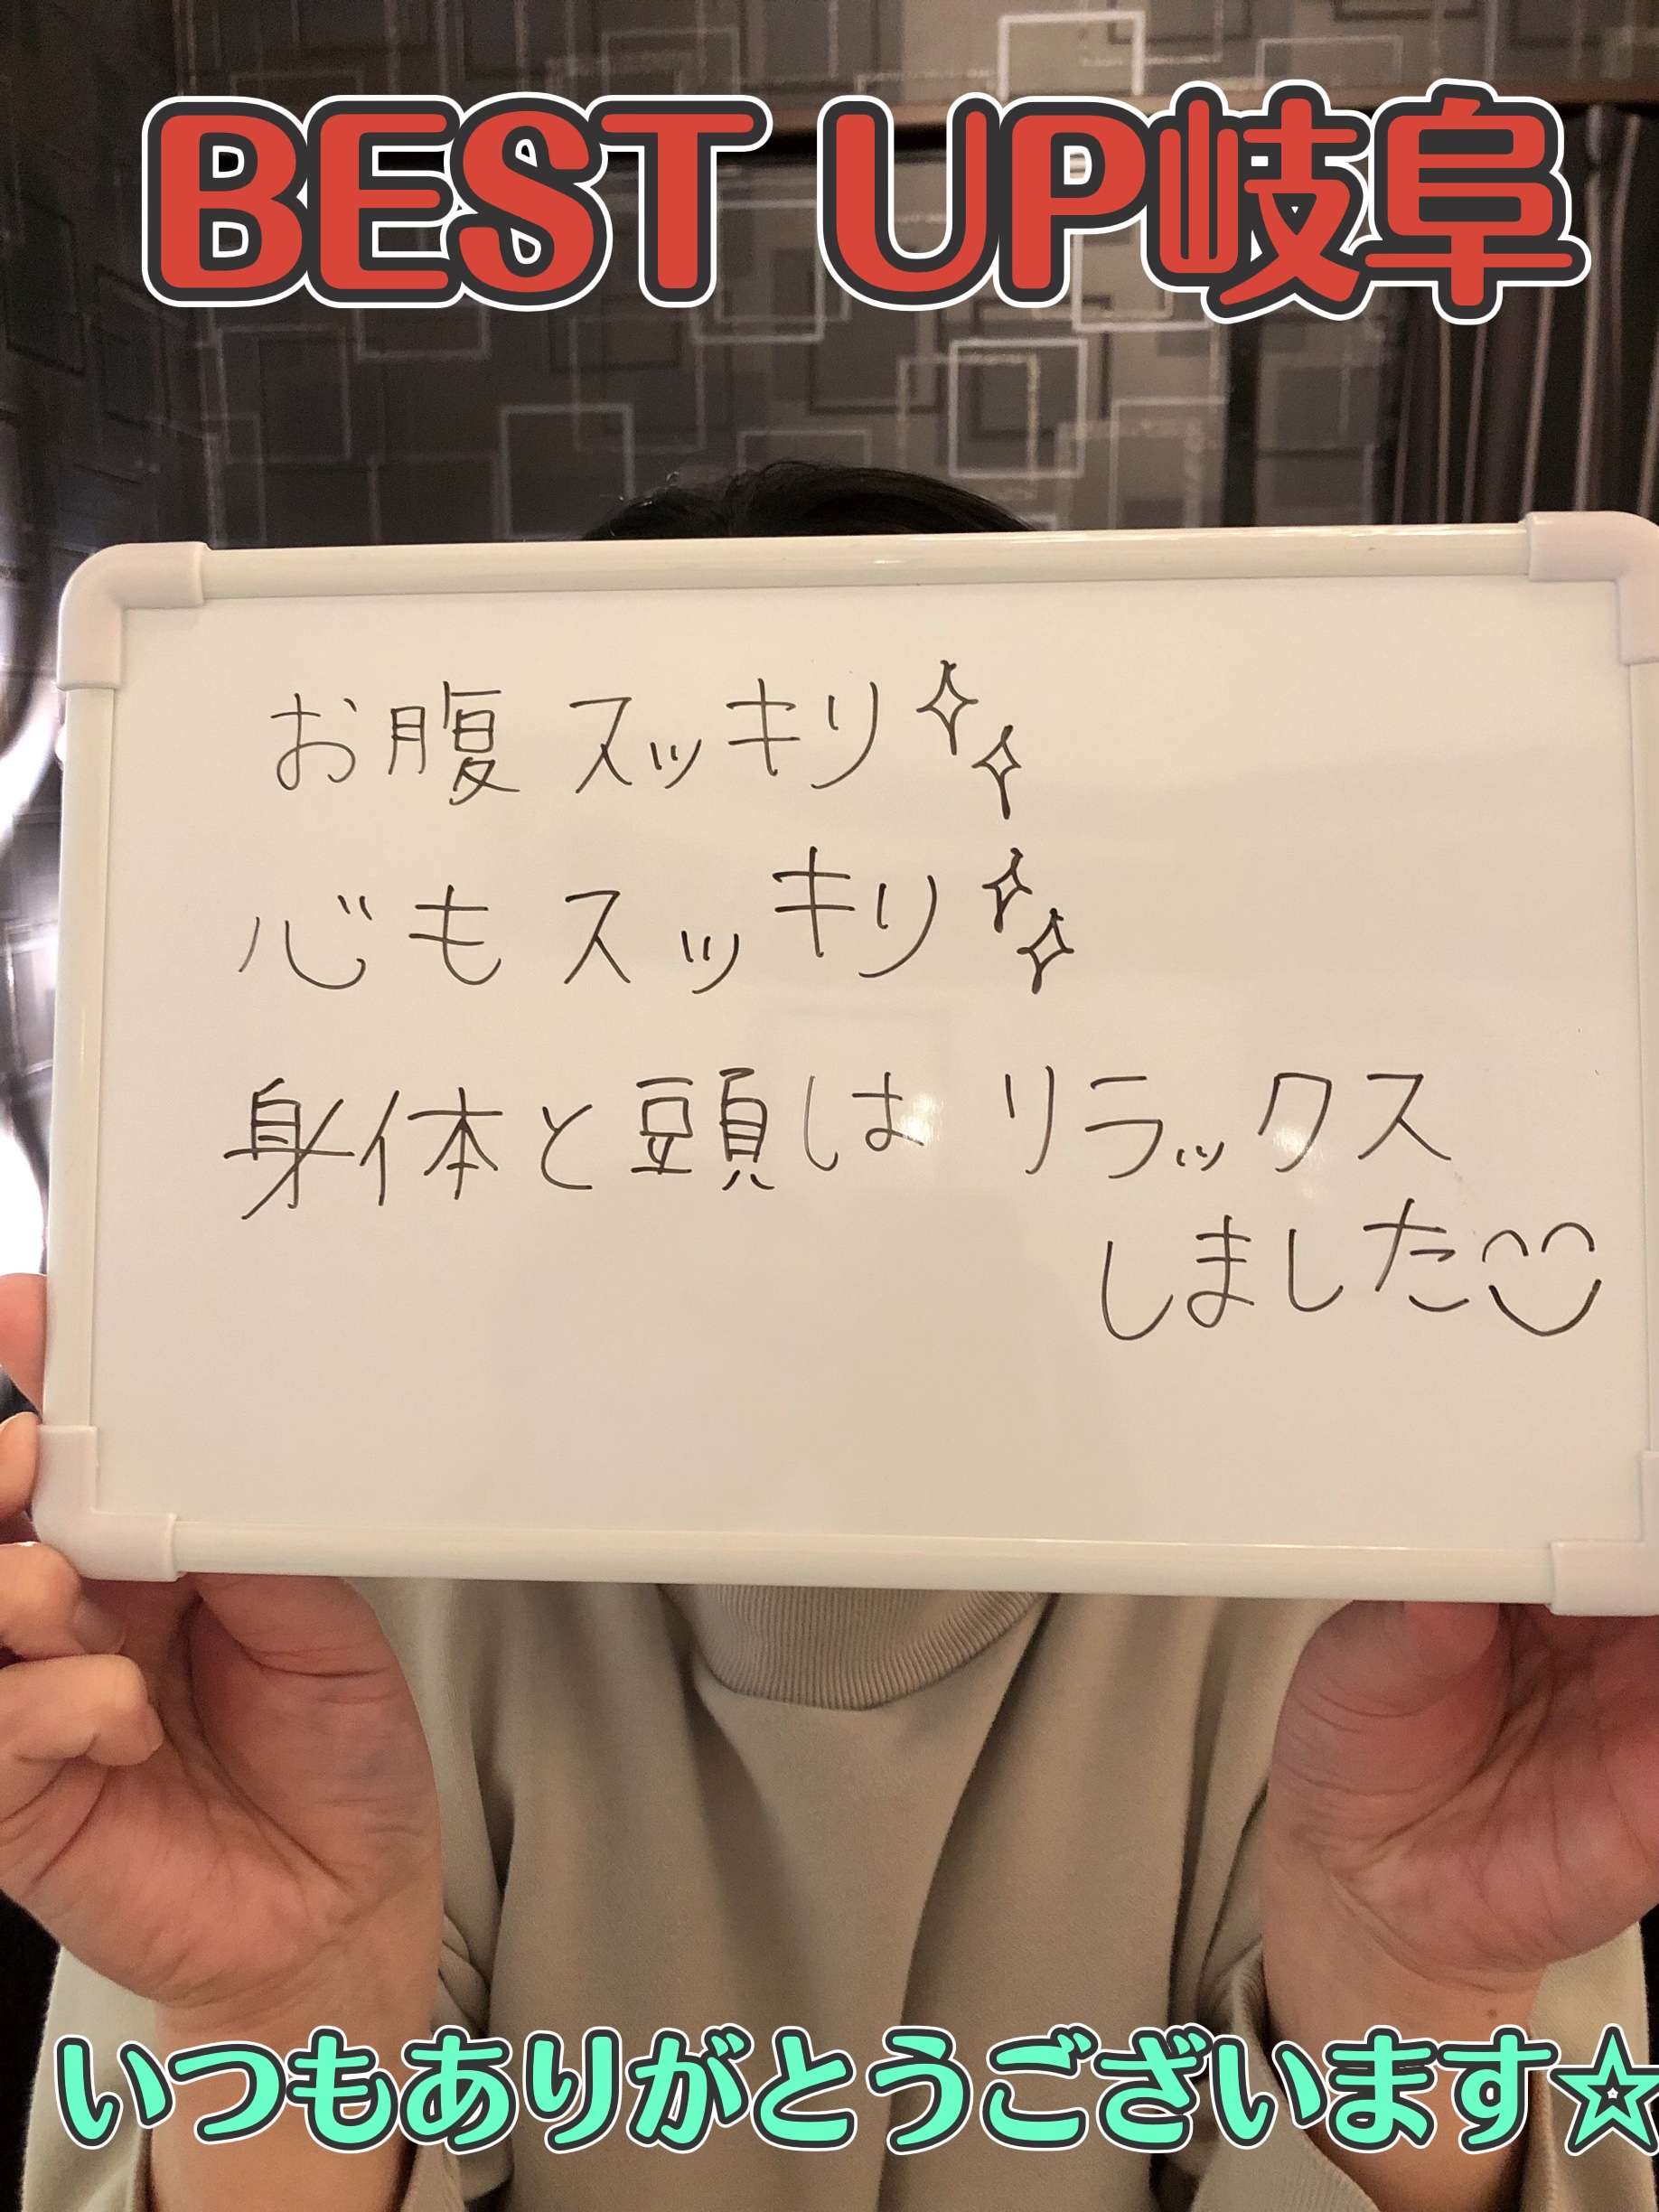 BEST UP岐阜
お腹スッキリ✧✧
心もスッキリ✧✧
身体と頭はリラックス
しました
いつもありがとうございます☆